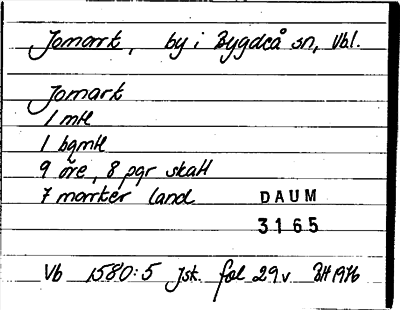 Jomark, by i Bygdeå sn, Vbl.
Jomark
1 mtl
1 bgmtl
9 öre, 8 pgr skatt
7 markter land
DAUM
3165
Vb 1580:5 Jsk. fol 29v BH 1976